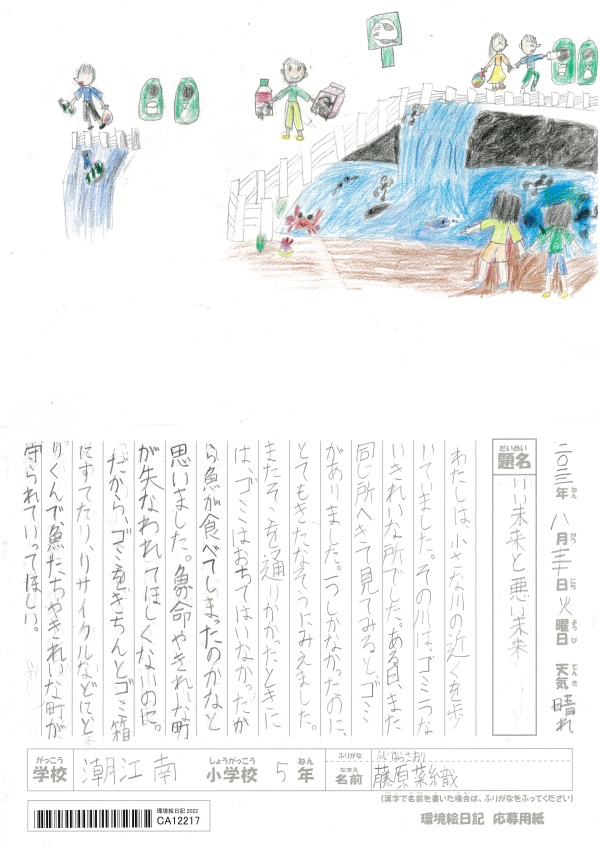 二〇二二年 八月 日 火曜日 天気 晴れ
ねん がつ にち ようび てんき
だいめい
題名 いい未来と悪い未来
わたしは、小さな川の近くを歩
いていました。その川は、ゴミ一つな
いきれいな所でした。ある日、また
同じ所へきて見てみると、ゴミ
がありました。一つしかなかったのに、
とてもきたなそうにみえました。
またそこを通りかかったときに
は、ゴミはおちてはいなかったか
ら魚が食べてしまったのかなと
思いました。魚の命やきれいな町
が失なわれてほしくないのに。
だから、ゴミをきちんとゴミ箱
にすてたり、リサイクルなどにとり
くんで、魚たちやきれいな町が
守られていってほしい。
がっこう しょうがっこう ねん ふりがな ふじわらさおり
学校 潮江南 小学校 5年 なまえ 名前 藤原菜織
(漢字で名前を書いた場合は、ふりがなをふってください)
環境絵日記 2022
CA12217
環境絵日記 応募用紙